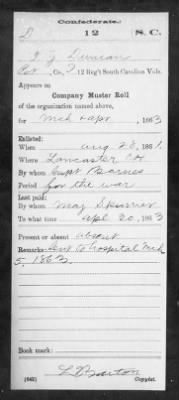 Confederate.
D 12 S. C.
Duncan
Co. , 12 Reg't South Carolina Vols.
Appears on
Company Muster Roll
of the organization named above,
for Mch & Apr, 1863
Enlisted:
When Aug 28, 1861.
Where Lancaster CH
By whom Capt Barnes
Period for the war
Last paid:
By whom Maj Skinner
To what time Apl 20, 1863
Present or absent absent
Remarks: Sent to hospital Mch
5, 1863.
Book mark:
Barton
(642) Copyist.